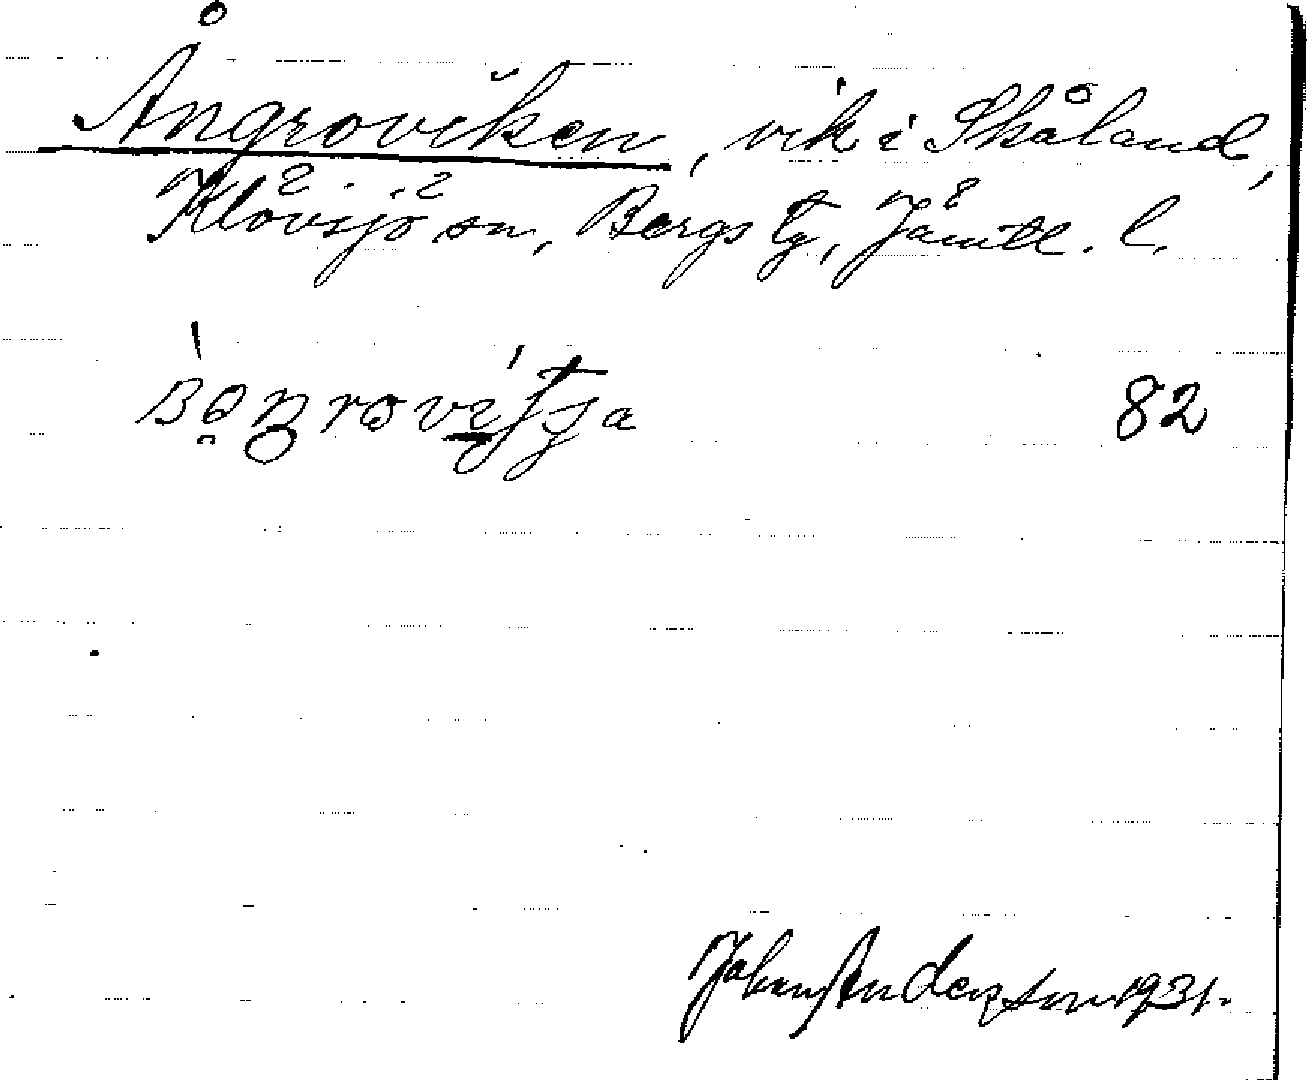 Ångroviken, vik i Skåland,
Klövsjö sn, Bergs tg, Jämtl. l.
82
Johan Anderson 1931.